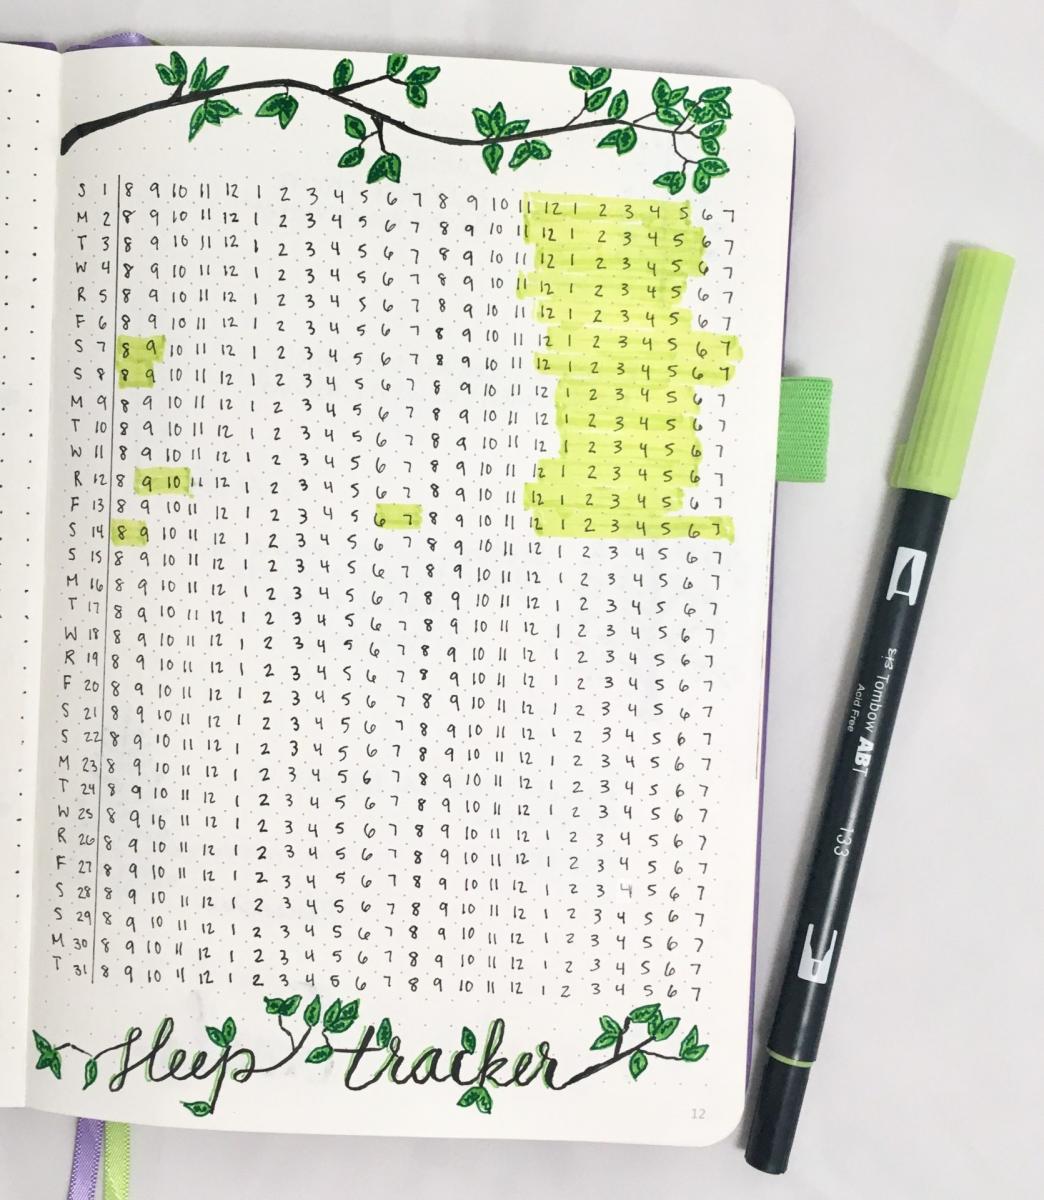 S 1 8 9 10 11 12 1 2 3 4 5 6 7 8 9 10 11 12 1 2 3 4 5 6 7
M 2 8 9 10 11 12 1 2 3 4 5 6 7 8 9 10 11 12 1 2 3 4 5 6 7
T 3 8 9 10 11 12 1 2 3 4 5 6 7 8 9 10 11 12 1 2 3 4 5 6 7
W 4 8 9 10 11 12 1 2 3 4 5 6 7 8 9 10 11 12 1 2 3 4 5 6 7
R 5 8 9 10 11 12 1 2 3 4 5 6 7 8 9 10 11 12 1 2 3 4 5 6 7
F 6 8 9 10 11 12 1 2 3 4 5 6 7 8 9 10 11 12 1 2 3 4 5 6 7
S 7 8 9 10 11 12 1 2 3 4 5 6 7 8 9 10 11 12 1 2 3 4 5 6 7
S 8 8 9 10 11 12 1 2 3 4 5 6 7 8 9 10 11 12 1 2 3 4 5 6 7
M 9 8 9 10 11 12 1 2 3 4 5 6 7 8 9 10 11 12 1 2 3 4 5 6 7
T 10 8 9 10 11 12 1 2 3 4 5 6 7 8 9 10 11 12 1 2 3 4 5 6 7
W 11 8 9 10 11 12 1 2 3 4 5 6 7 8 9 10 11 12 1 2 3 4 5 6 7
R 12 8 9 10 11 12 1 2 3 4 5 6 7 8 9 10 11 12 1 2 3 4 5 6 7
F 13 8 9 10 11 12 1 2 3 4 5 6 7 8 9 10 11 12 1 2 3 4 5 6 7
S 14 8 9 10 11 12 1 2 3 4 5 6 7 8 9 10 11 12 1 2 3 4 5 6 7
S 15 8 9 10 11 12 1 2 3 4 5 6 7 8 9 10 11 12 1 2 3 4 5 6 7
M 16 8 9 10 11 12 1 2 3 4 5 6 7 8 9 10 11 12 1 2 3 4 5 6 7
T 17 8 9 10 11 12 1 2 3 4 5 6 7 8 9 10 11 12 1 2 3 4 5 6 7
W 18 8 9 10 11 12 1 2 3 4 5 6 7 8 9 10 11 12 1 2 3 4 5 6 7
R 19 8 9 10 11 12 1 2 3 4 5 6 7 8 9 10 11 12 1 2 3 4 5 6 7
F 20 8 9 10 11 12 1 2 3 4 5 6 7 8 9 10 11 12 1 2 3 4 5 6 7
S 21 8 9 10 11 12 1 2 3 4 5 6 7 8 9 10 11 12 1 2 3 4 5 6 7
S 22 8 9 10 11 12 1 2 3 4 5 6 7 8 9 10 11 12 1 2 3 4 5 6 7
M 23 8 9 10 11 12 1 2 3 4 5 6 7 8 9 10 11 12 1 2 3 4 5 6 7
T 24 8 9 10 11 12 1 2 3 4 5 6 7 8 9 10 11 12 1 2 3 4 5 6 7
W 25 8 9 10 11 12 1 2 3 4 5 6 7 8 9 10 11 12 1 2 3 4 5 6 7
R 26 8 9 10 11 12 1 2 3 4 5 6 7 8 9 10 11 12 1 2 3 4 5 6 7
F 27 8 9 10 11 12 1 2 3 4 5 6 7 8 9 10 11 12 1 2 3 4 5 6 7
S 28 8 9 10 11 12 1 2 3 4 5 6 7 8 9 10 11 12 1 2 3 4 5 6 7
S 29 8 9 10 11 12 1 2 3 4 5 6 7 8 9 10 11 12 1 2 3 4 5 6 7
M 30 8 9 10 11 12 1 2 3 4 5 6 7 8 9 10 11 12 1 2 3 4 5 6 7
T 31 8 9 10 11 12 1 2 3 4 5 6 7 8 9 10 11 12 1 2 3 4 5 6 7
sleep tracker
12
Tombow ABT 133
Acid Free